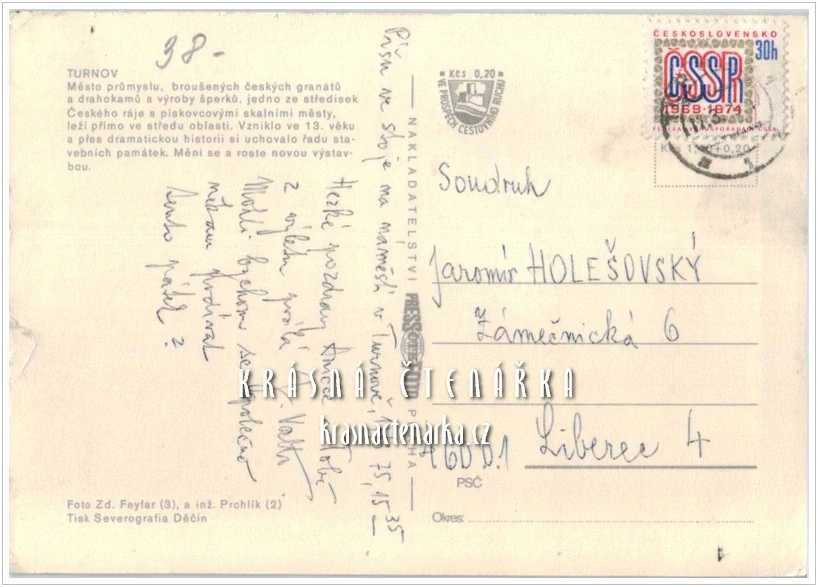 98-
TURNOV
Město průmyslu, broušených českých granátů
a drahokamů a výroby šperků, jedno ze středisek
Českého ráje s pískovcovými skalními městy,
leží přímo ve středu oblasti. Vzniklo ve 13. věku
a přes dramatickou historii si uchovalo řadu sta-
vebních památek. Mění se a roste novou výstav-
bou.
Hezké pozdravy Anice a Tobě
z výletu posílá
Mohli bychom se společně
někam podívat
tento pátek?
Píšu ve stoje na náměstí v Turnově,
75, 15 35
Foto Zd. Feyfar (3), a inž. Prchlík (2)
Tisk Severografia Děčín
NAKLADATELSTVÍ PRAHA
Kčs 0,20
VE PROSPĚCH CESTOVNÍHO RUCHU
ČESKOSLOVENSKO
30h
ČSSR
1969-1974
Kčs 1,00+0,20
Soudruh
Jaromír HOLEŠOVSKÝ
Zámečnická 6
Liberec 4
460 01
PSČ
Okres:
KRÁSNÁ ČTENÁŘKA
krasnactenarka.cz